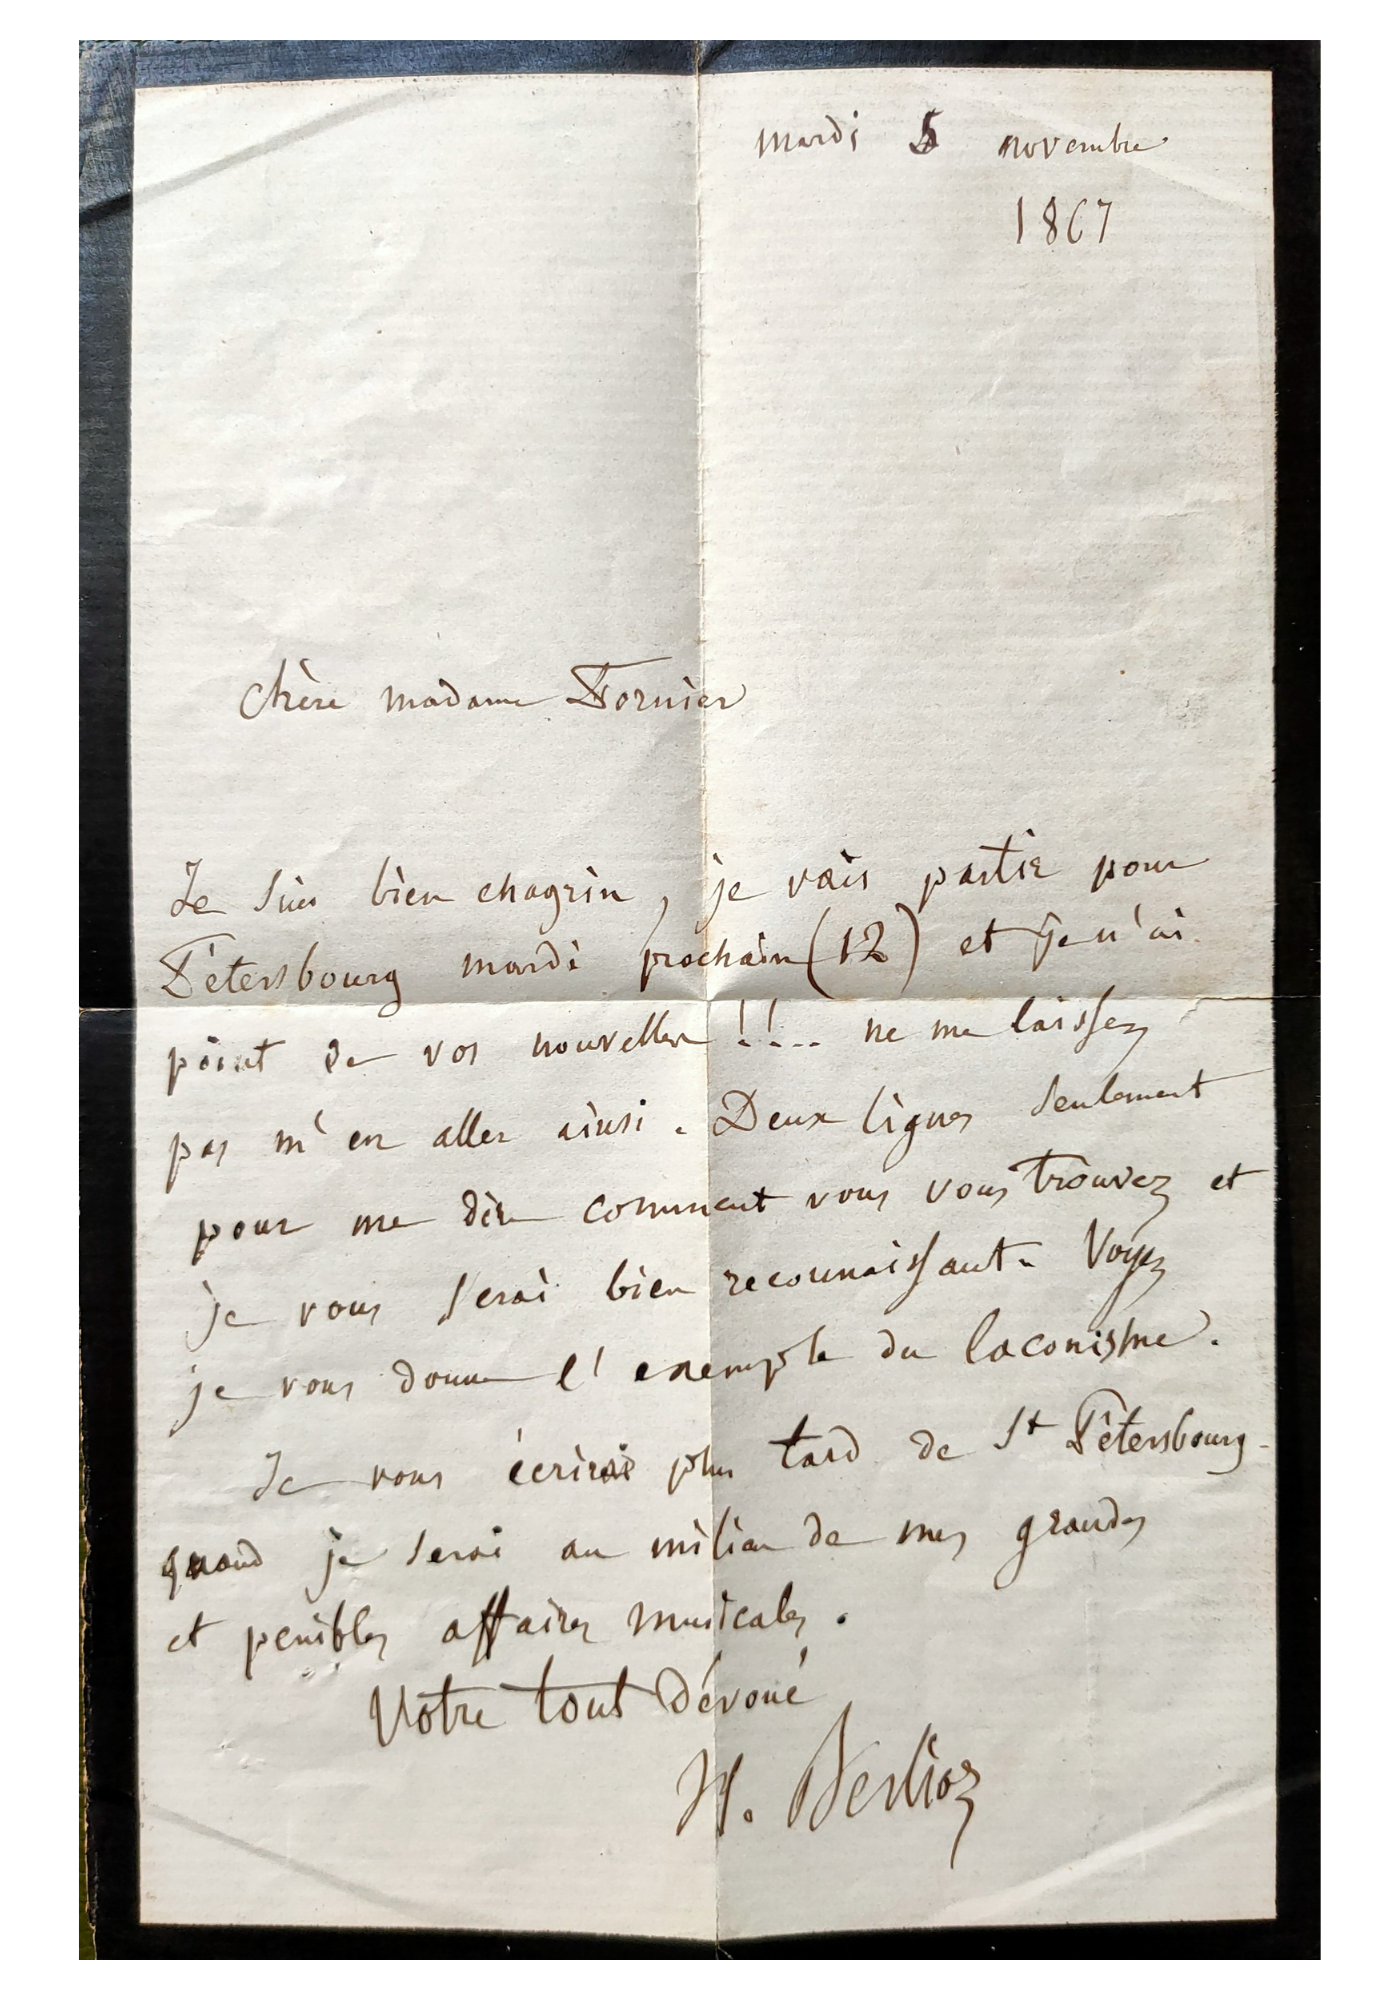 mardi 5 novembre
1867
Chère madame Fornier
Je suis bien chagrin, je vais partir pour
Pétersbourg mardi prochain (12) et je n'ai
point de vos nouvelles !!... ne me laissez
pas m'en aller ainsi. Deux lignes seulement
pour me dire comment vous vous trouvez et
je vous serai bien reconnaissant. Voyez
je vous donne l'exemple du laconisme.
Je vous écrirai plus tard de St Pétersbourg
quand je serai au milieu de mes grandes
et penibles affaires musicales.
Votre tout dévoué
H. Berlioz